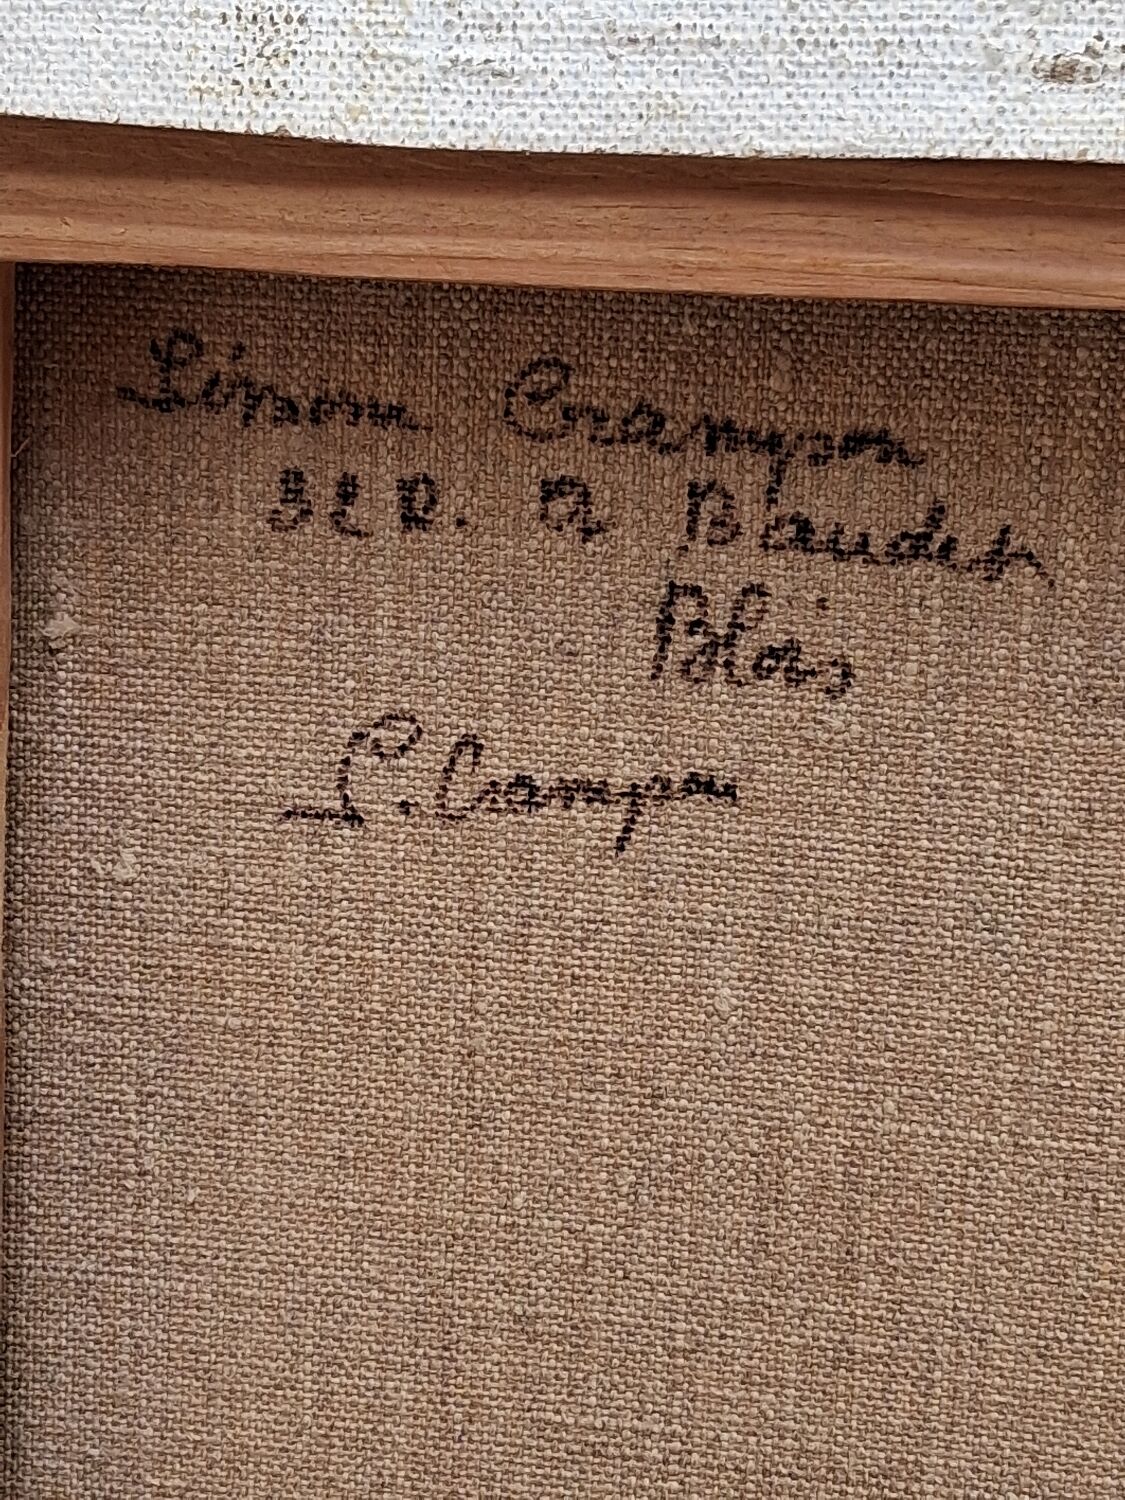 Simon Crampon
3 E D. A Blaudet
Blois
S. Crampon